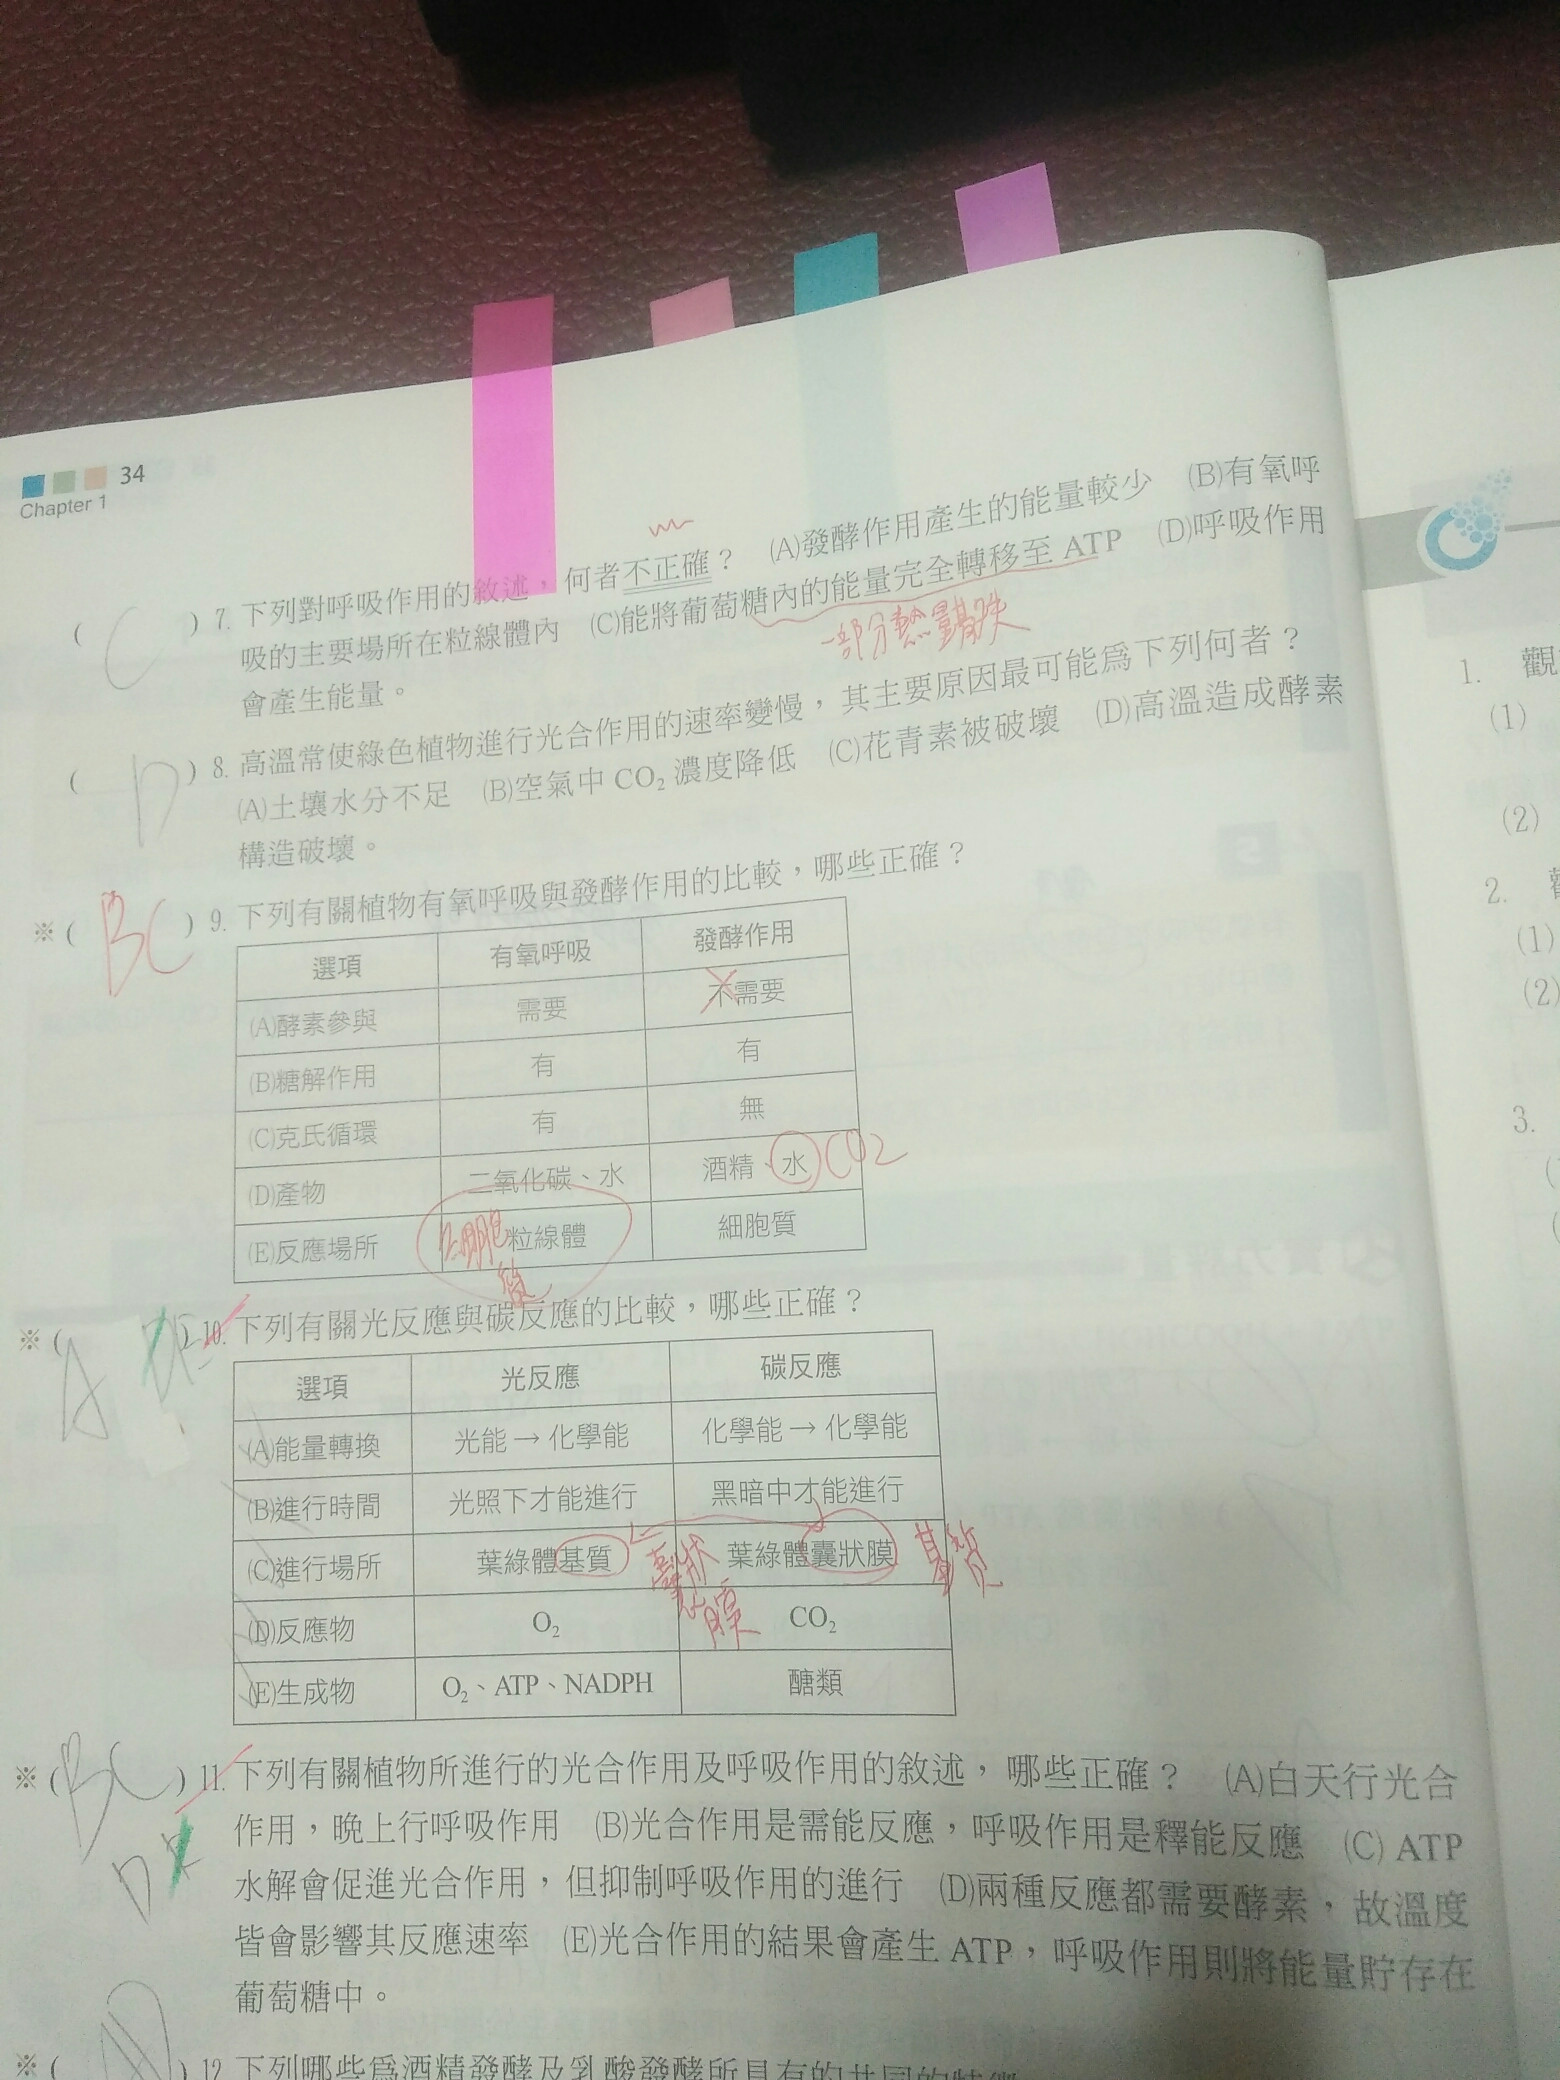 34
Chapter 1
( C ) 7. 下列對呼吸作用的敘述，何者不正確？ (A)發酵作用產生的能量較少 (B)有氧呼
吸的主要場所在粒線體內 (C)能將葡萄糖內的能量完全轉移至 ATP (D)呼吸作用
一部分熱量散失
會產生能量。
( D ) 8. 高溫常使綠色植物進行光合作用的速率變慢，其主要原因最可能為下列何者？
(A)土壤水分不足 (B)空氣中 CO₂ 濃度降低 (C)花青素被破壞 (D)高溫造成酵素
構造破壞。
※ ( BC ) 9. 下列有關植物有氧呼吸與發酵作用的比較，哪些正確？
選項 有氧呼吸 發酵作用
(A)酵素參與 需要 不需要
(B)糖解作用 有 有
(C)克氏循環 有 無
(D)產物 二氧化碳、水 酒精、水 CO2
(E)反應場所 細胞質 粒線體 細胞質
※ ( A ) 10. 下列有關光反應與碳反應的比較，哪些正確？
選項 光反應 碳反應
(A)能量轉換 光能 → 化學能 化學能 → 化學能
(B)進行時間 光照下才能進行 黑暗中才能進行
(C)進行場所 葉綠體基質 囊狀膜 葉綠體囊狀膜 基質
(D)反應物 O₂ CO₂
(E)生成物 O₂、ATP、NADPH 醣類
※ ( BC D ) 11. 下列有關植物所進行的光合作用及呼吸作用的敘述，哪些正確？ (A)白天行光合
作用，晚上行呼吸作用 (B)光合作用是需能反應，呼吸作用是釋能反應 (C) ATP
水解會促進光合作用，但抑制呼吸作用的進行 (D)兩種反應都需要酵素，故溫度
皆會影響其反應速率 (E)光合作用的結果會產生 ATP，呼吸作用則將能量貯存在
葡萄糖中。
※ ( ) 12. 下列哪些為酒精發酵及乳酸發酵所具有的共同的特徵
1. 觀
(1)
(2)
2.
(1)
(2)
3.